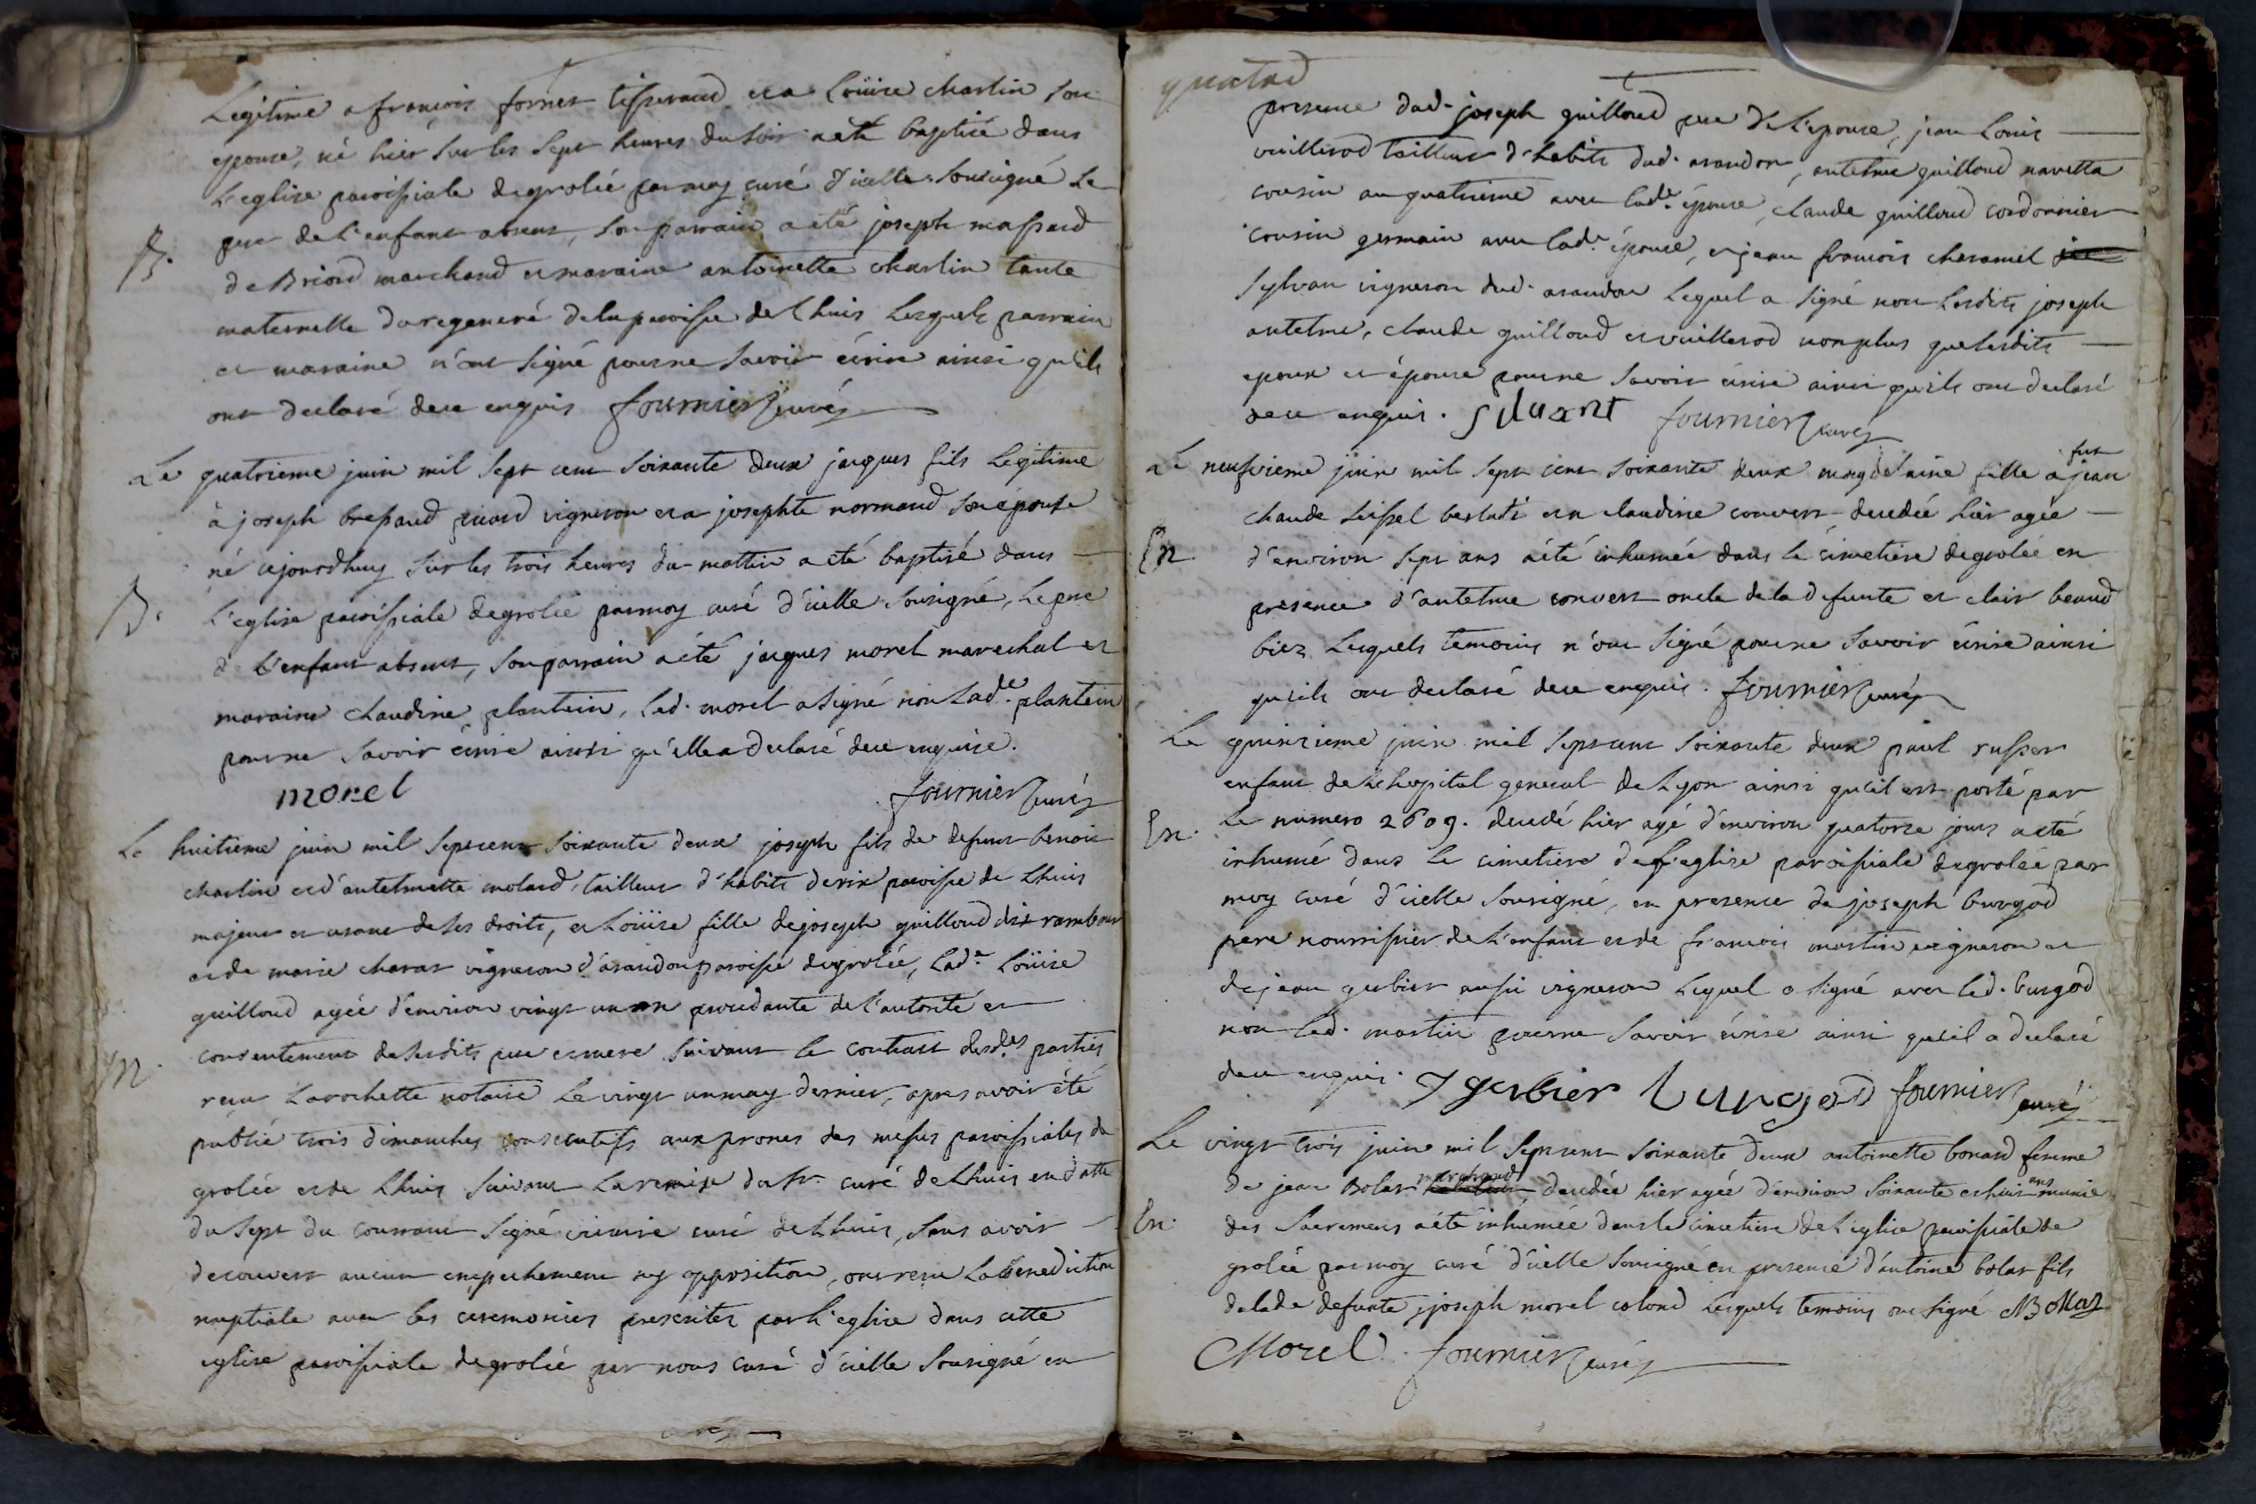 Legitime a francois fornet tisserand et a Loüise charlin son
epouse, né hier sur les sept heures du soir a eté baptisé dans
L'eglise paroissiale de grolée par moy curé d'icelle soussigné Le
B. pere de L'enfant absent, son parrain a eté joseph massard
de Briord marchand et maraine antoinette charlin tante
maternelle du regeneré de la paroisse de Lhuis Lesquels parrain
et maraine n'ont signé pour ne savoir écrire ainsi qu'ils
ont declaré de ce enquis fournier curé
Le quatrieme juin mil sept cent soixante deux jacques fils Legitime
à joseph vigneron et a josephte normand son épouse
né cejourdhuy sur les trois heures du mattin a eté baptisé dans
B. L'eglise paroissiale de grolée par moy curé d'icelle sousigné, Le pere
de L'enfant absent, son parrain a eté jacques morel marechal et
maraine claudine plantin, led. morel a signé non lade. plantin
pour ne savoir écrire ainsi qu'elle a declaré de ce enquise.
morel fournier curé
Le huitieme juin mil sept cent soixante deux joseph fils de defunt benoit
charlin et d'antelmette molard, tailleur d'habits de rix paroisse de Lhuis
majeur et usant de ses droits, et Loüise fille de joseph guilloud dit
et de marie charat vigneron d'arandon paroisse de grolée, lade. Loüise
guilloud agée d'environ vingt un an procedante de l'autorité et
m. consentement de sesdits pere et mere suivant le contract desdes. parties
reçu Larochette notaire Le vingt un may dernier, apres avoir été
publié trois dimanches consecutifs aux prones des messes paroissiales de
grolée et de Lhuis suivant La remise du sr. curé de Lhuis en datte
du sept du courrant signé curé de Lhuis, sans avoir
decouvert aucun empechement ny opposition, ont reçu La benediction
nuptiale avec les ceremonies prescrites par L'eglise dans cette
eglise paroissiale de grolée par nous curé d'icelle sousigné en
presence dud. joseph guilloud pere de L'epouse, jean Louis
vuillerod tailleur d'habits dud. arandon, antelme guilloud navetta
cousin au quatrieme avec lade. épouse, claude guilloud cordonnier
cousin germain avec lade. épouse, et jean francois cheramel
sylvan vigneron dud. arandon Lequel a signé non Lesdits joseph
antelme, claude guilloud et vuillerod non plus que lesdits
epoux et épouse pour ne savoir écrire ainsi qu'ils ont declaré
de ce enquis. Siluant fournier curé
Le neufvieme juin mil sept cent soixante deux magdelaine fille à fut jean
claude et a claudine convert decedée hier agée
En d'environ sept ans a été inhumée dans le cimetiere de grolée en
presence d'antelme convert oncle de la defunte et clair beaud
biez Lesquels temoins n'ont signé pour ne savoir écrire ainsi
qu'ils ont declaré de ce enquis. fournier curé
Le quinzieme juin mil sept cent soixante deux paul
enfant de L'hopital general de Lyon ainsi qu'il est porté par
En. Le numero 2609. decedé hier agé d'environ quatorze jours a eté
inhumé dans Le cimetiere de L'eglise paroissiale de grolée par
moy curé d'icelle sousigné, en presence de joseph burgod
pere nourrissier de L'enfant et de francois martin vigneron et
de jean gerbier aussi vigneron Lequel a signé avec led. burgod
non led. martin pour ne savoir écrire ainsi qu'il a declaré
de ce enquis. J gerbier burgod fournier curé
Le vingt trois juin mil sept cent soixante deux antoinette bonard femme
de jean Bolas marchand decedée hier agée d'environ soixante et huit ans munie
En. des sacremens a été inhumée dans le cimetiere de L'eglise paroissiale de
grolée par moy curé d'icelle sousigné en presence d'antoine bolas fils
de lade defunte, joseph morel Lesquels temoins ont signé
Morel fournier curé